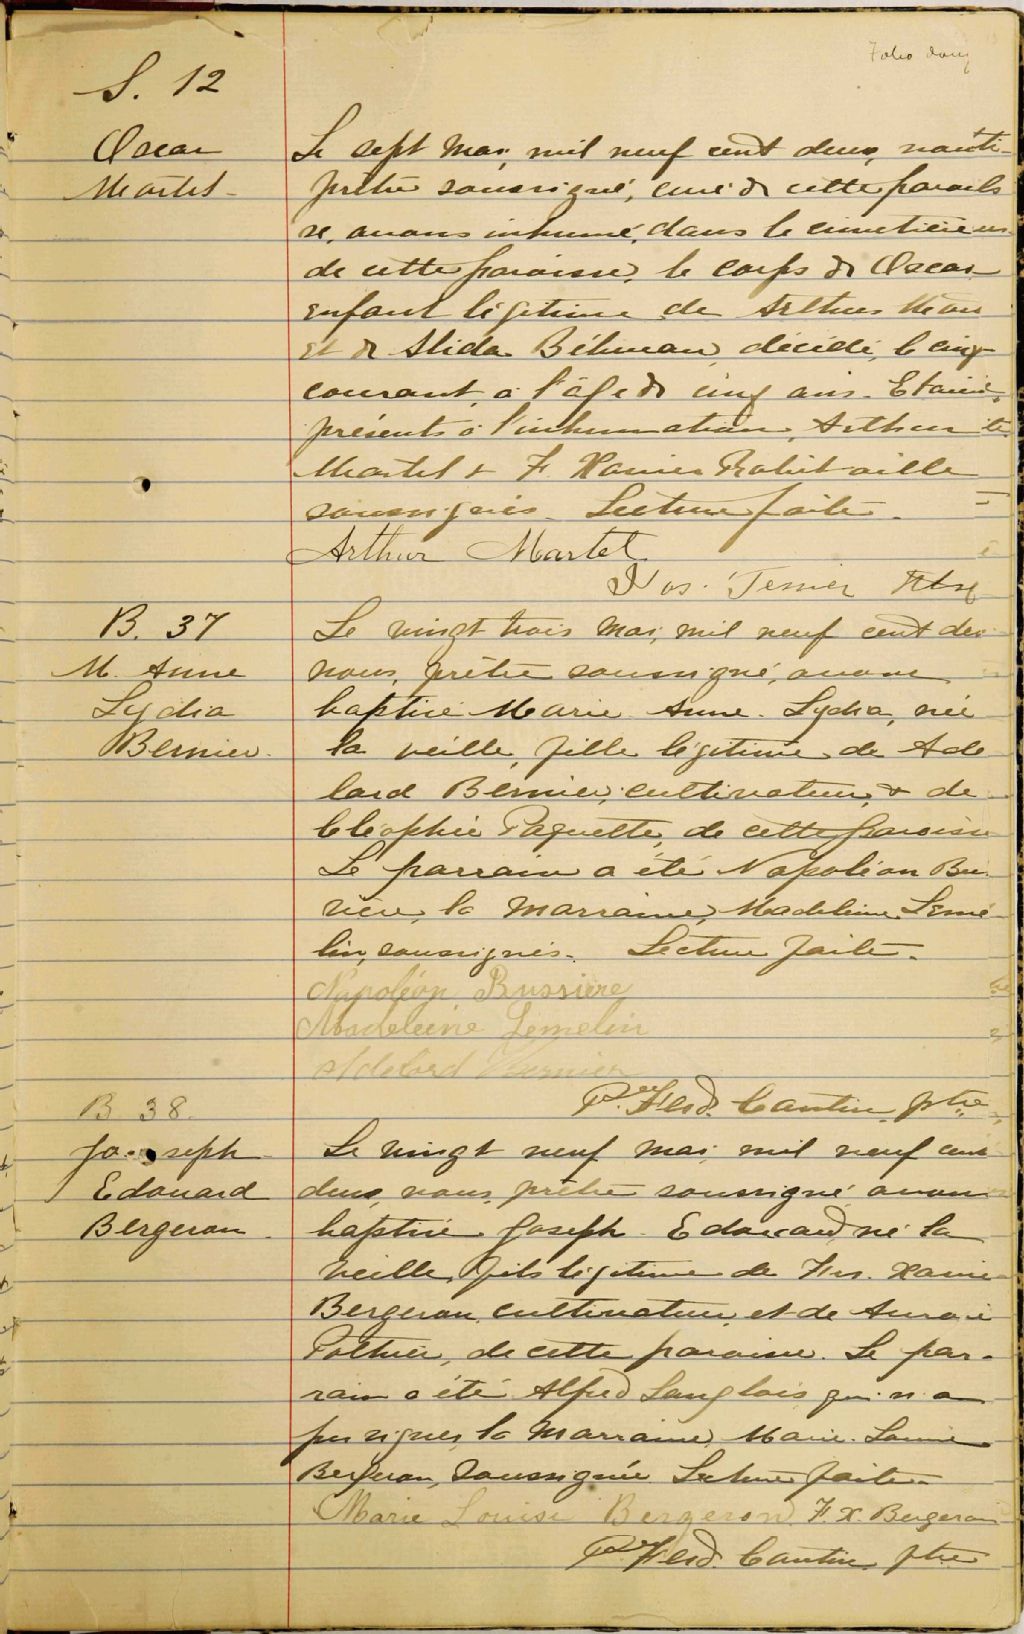 Folio
S. 12
Oscar
Martel
Le sept mai, mil neuf cent deux, nous
prêtre soussigné, curé de cette parois
se, avons inhumé, dans le cimetière
de cette paroisse, le corps de Oscar
enfant légitime de Arthur
et de Alida décédé, le cinq
courant, à l'âge de cinq ans. Etaient
présents à l'inhumation, Arthur
Martel & F. Xavier Robitaille
soussignés. Lecture faite.
Arthur Martel
Nos. Tessier Ptre
B. 37
M. Anne
Lydia
Bernier
Le vingt trois mai, mil neuf cent deux
nous, prêtre soussigné, avons
baptisé Marie Anne Lydia, née
la veille, fille légitime de Adé
lard Bernier, cultivateur, & de
Cléophée Paquette, de cette paroisse
Le parrain a été Napoléon Bus
sière, la marraine, Madeleine Leme
lin, soussignés. Lecture faite.
Napoléon Bussière
Madeleine Lemelin
Adelard Bernier
Ferd. Cantin, ptre
B 38.
Joseph
Edouard
Bergeron
Le vingt neuf mai, mil neuf cent
deux, nous, prêtre soussigné avons
baptisé Joseph Edouard, né la
veille, fils légitime de Frs. Xavier
Bergeron, cultivateur, et de Aurore
Pothier, de cette paroisse. Le par-
rain a été Alfred Langlois qui n'a
pu signer, la marraine, Marie Louise
Bergeron, soussignée. Lecture faite.
Marie Louise Bergeron F. X. Bergeron
Ferd. Cantin, ptre